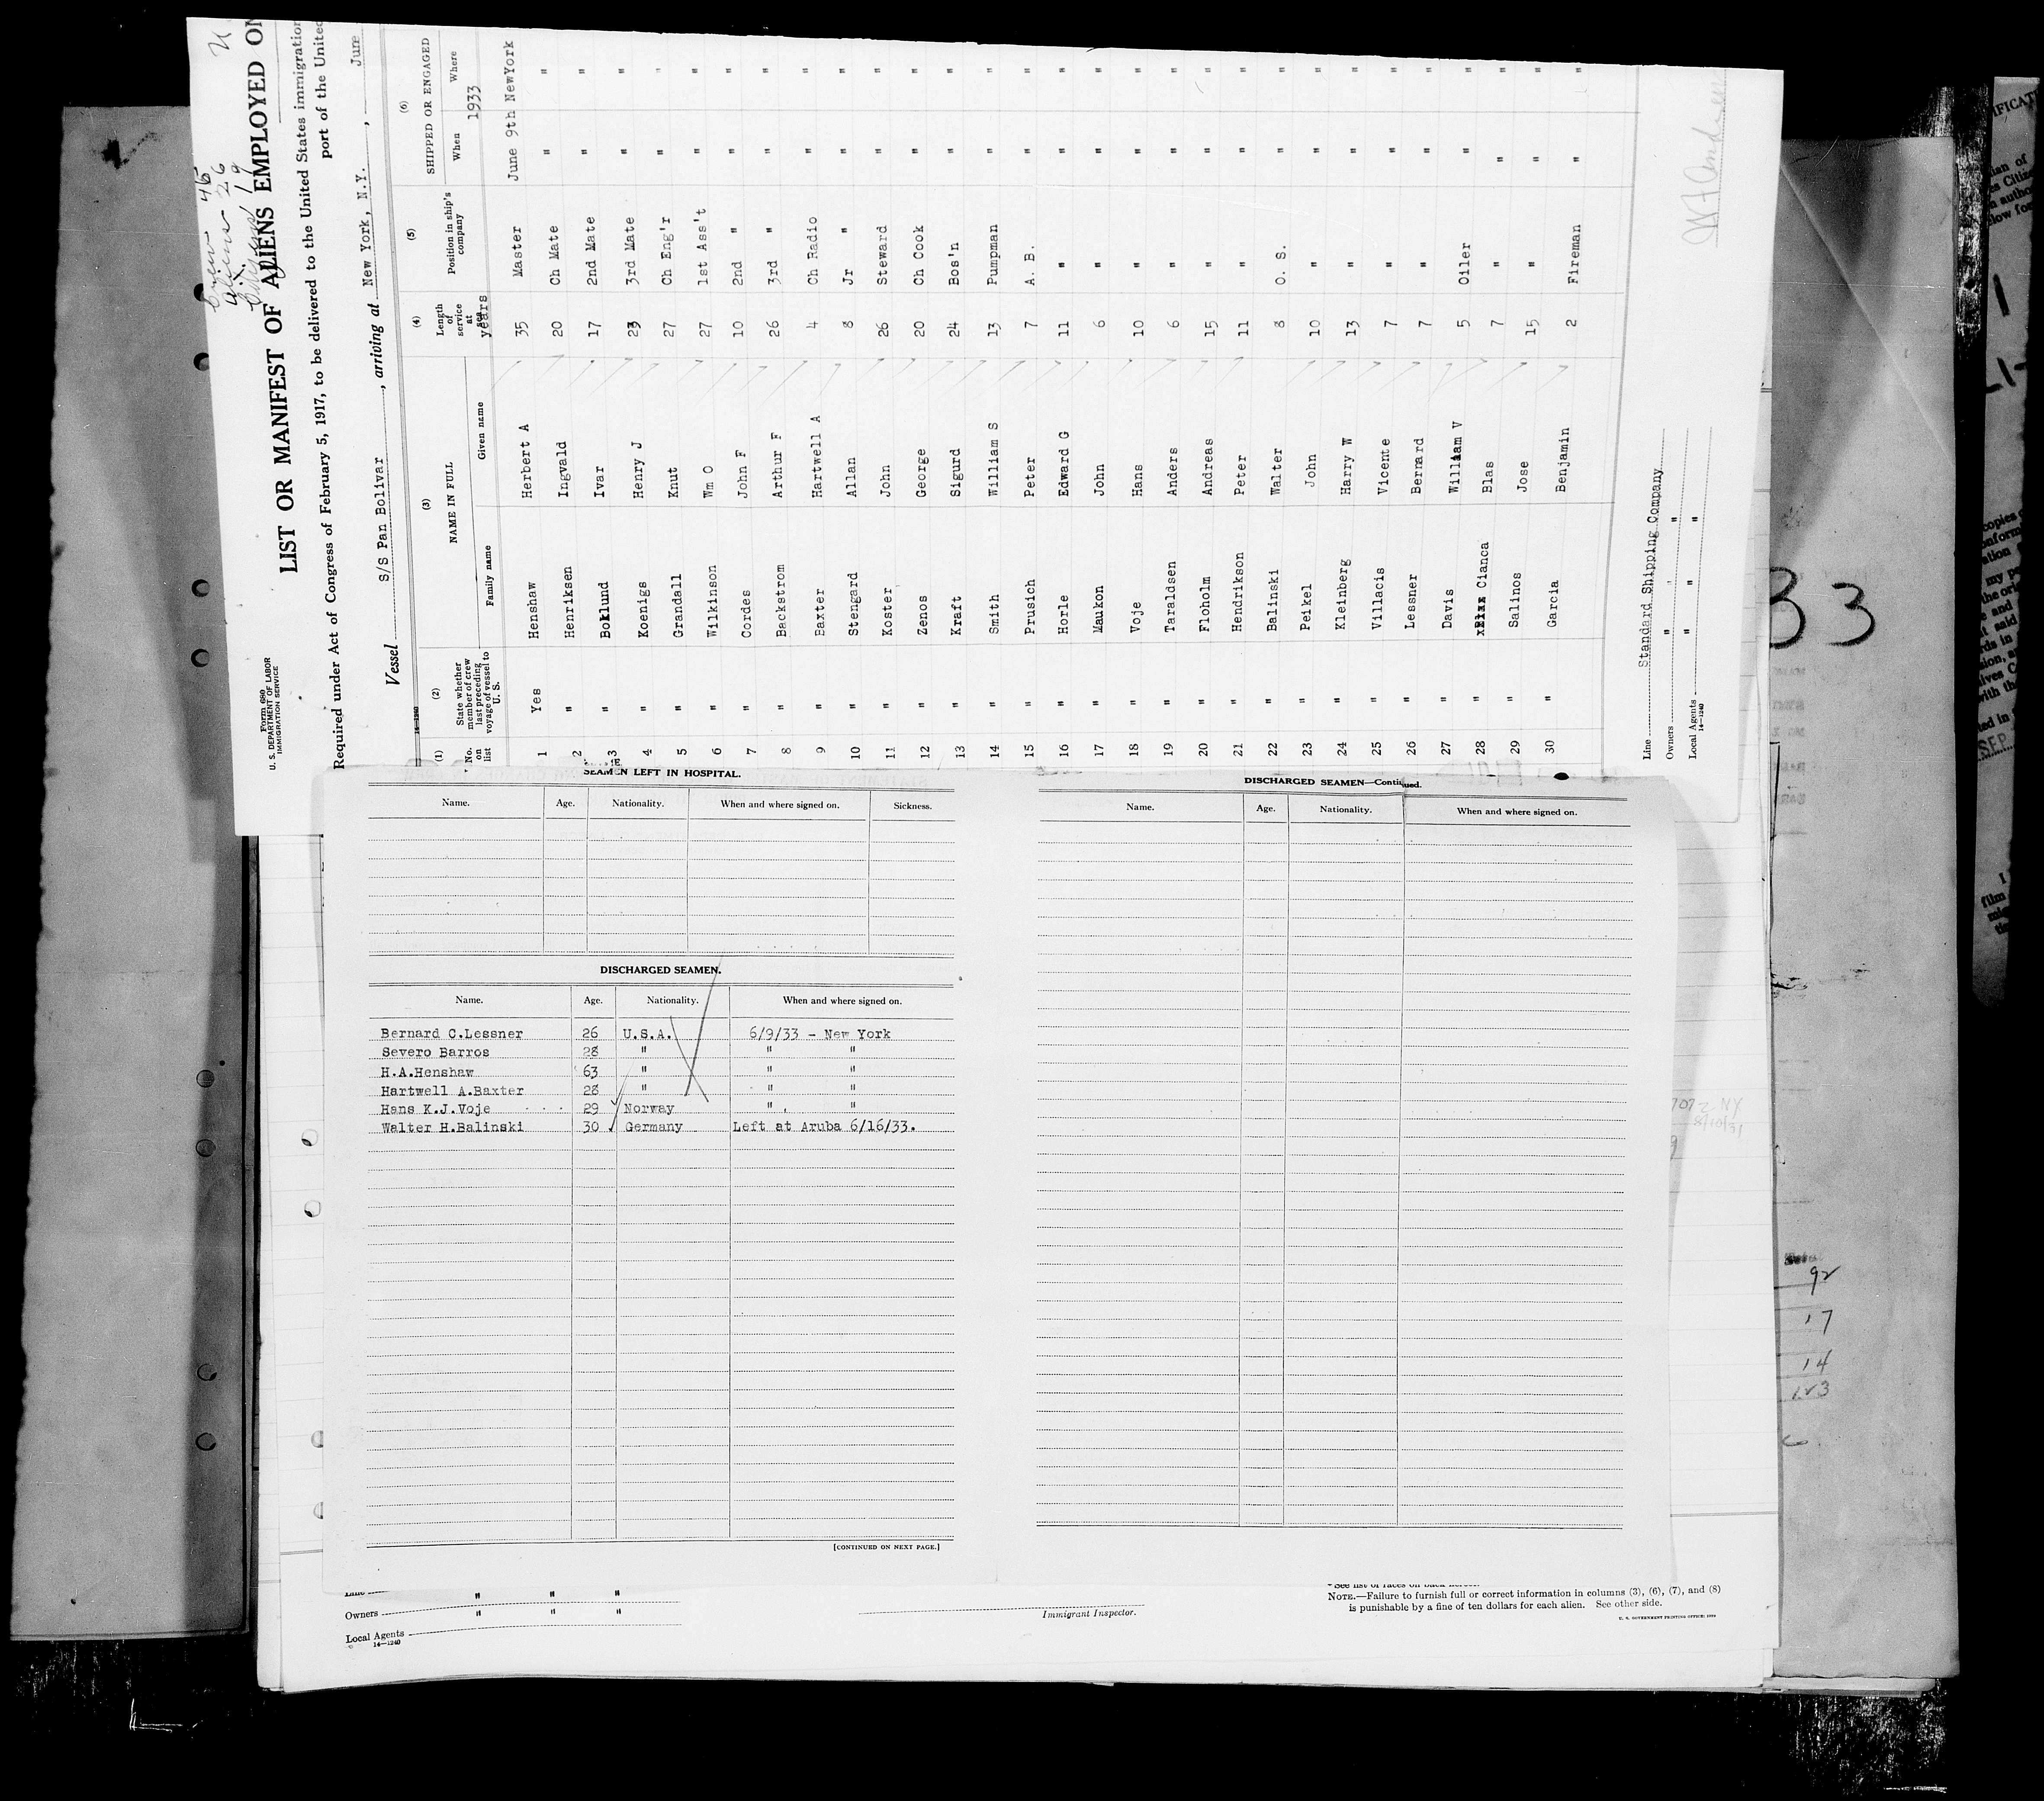 Form 680
U. S. DEPARTMENT OF LABOR
IMMIGRATION SERVICE
Crew 45
Aliens 26
19
LIST OR MANIFEST OF ALIENS EMPLOYED ON
Required under Act of Congress of February 5, 1917, to be delivered to the United States immigration
port of the United
Vessel S/S Pan Bolivar, arriving at New York, N.Y., June
14-1240
(1) (2) (3) (4) (5) (6)
No. on list State whether member of crew last preceding voyage of vessel to U. S. NAME IN FULL Length of service at sea Position in ship's company SHIPPED OR ENGAGED
Family name Given name years When Where
1933
1 Yes Henshaw Herbert A 35 Master June 9th NewYork
2 " Henriksen Ingvald 20 Ch Mate " "
3 " Boklund Ivar 17 2nd Mate " "
4 " Koenigs Henry J 23 3rd Mate " "
5 " Grandall Knut 27 Ch Eng'r " "
6 " Wilkinson Wm O 27 1st Ass't " "
7 " Cordes John F 10 2nd " " "
8 " Backstrom Arthur F 26 3rd " " "
9 " Baxter Hartwell A 4 Ch Radio " "
10 " Stengard Allan 8 Jr " " "
11 " Koster John 26 Steward " "
12 " Zenos George 20 Ch Cook " "
13 " Kraft Sigurd 24 Bos'n " "
14 " Smith William S 13 Pumpman " "
15 " Prusich Peter 7 A. B. " "
16 " Horle Edward G 11 " " "
17 " Maukon John 6 " " "
18 " Voje Hans 10 " " "
19 " Taraldsen Anders 6 " " "
20 " Floholm Andreas 15 " " "
21 " Hendrikson Peter 11 " " "
22 " Balinski Walter 8 O. S. " "
23 " Peikel John 10 " " "
24 " Kleinberg Harry W 13 " " "
25 " Villacis Vicente 7 " " "
26 " Lessner Bernard 7 " " "
27 " Davis William V 5 Oiler " "
28 " Cianca Blas 7 " " "
29 " Salinos Jose 15 " " "
30 " Garcia Benjamin 2 Fireman " "
Line Standard Shipping Company
Owners " " "
Local Agents " " "
14-1240
SEAMEN LEFT IN HOSPITAL.
Name. Age. Nationality. When and where signed on. Sickness.
DISCHARGED SEAMEN.
Name. Age. Nationality. When and where signed on.
Bernard C.Lessner 26 U.S.A. 6/9/33 - New York
Severo Barros 28 " " "
H.A.Henshaw 63 " " "
Hartwell A.Baxter 28 " " "
Hans K.J.Voje 29 Norway " "
Walter H.Balinski 30 Germany Left at Aruba 6/16/33.
[CONTINUED ON NEXT PAGE.]
DISCHARGED SEAMEN—Continued.
Name. Age. Nationality. When and where signed on.
" " "
Owners " " "
Local Agents
14-1240
Immigrant Inspector.
* See list of races on back hereof.
NOTE.—Failure to furnish full or correct information in columns (3), (6), (7), and (8)
is punishable by a fine of ten dollars for each alien. See other side.
U. S. GOVERNMENT PRINTING OFFICE:
33
8/10/31
92
17
14
123